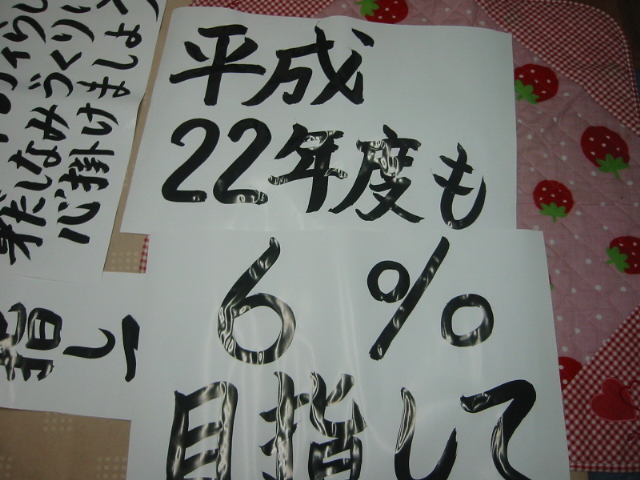 平成
22年度も
6%
目指して
なみづくりに
心掛けましょう
指し